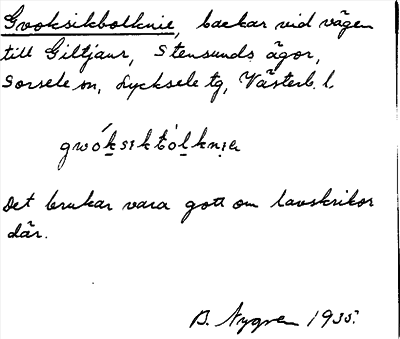 Gvoksikbolknie, backar vid vägen
till Giltjaur, Stensunds ägor,
Sorsele sn, Lycksele tg, Västerb. l.
gwóksiktólknıe
Det brukar vara gott om lavskrikor
där.
B. Nygren 1935.